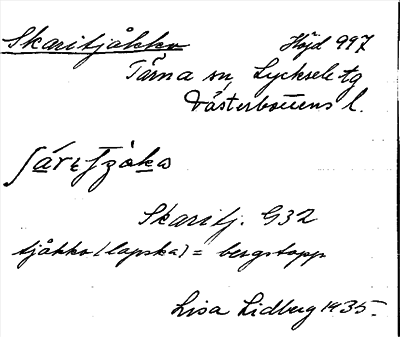 Skaritjåkko Höjd 997
Tärna sn, Lycksele tg
Västerbottens l.
Skaritj. G32
tjåkko (lapska) = bergstopp
Lisa Lidberg 1935.